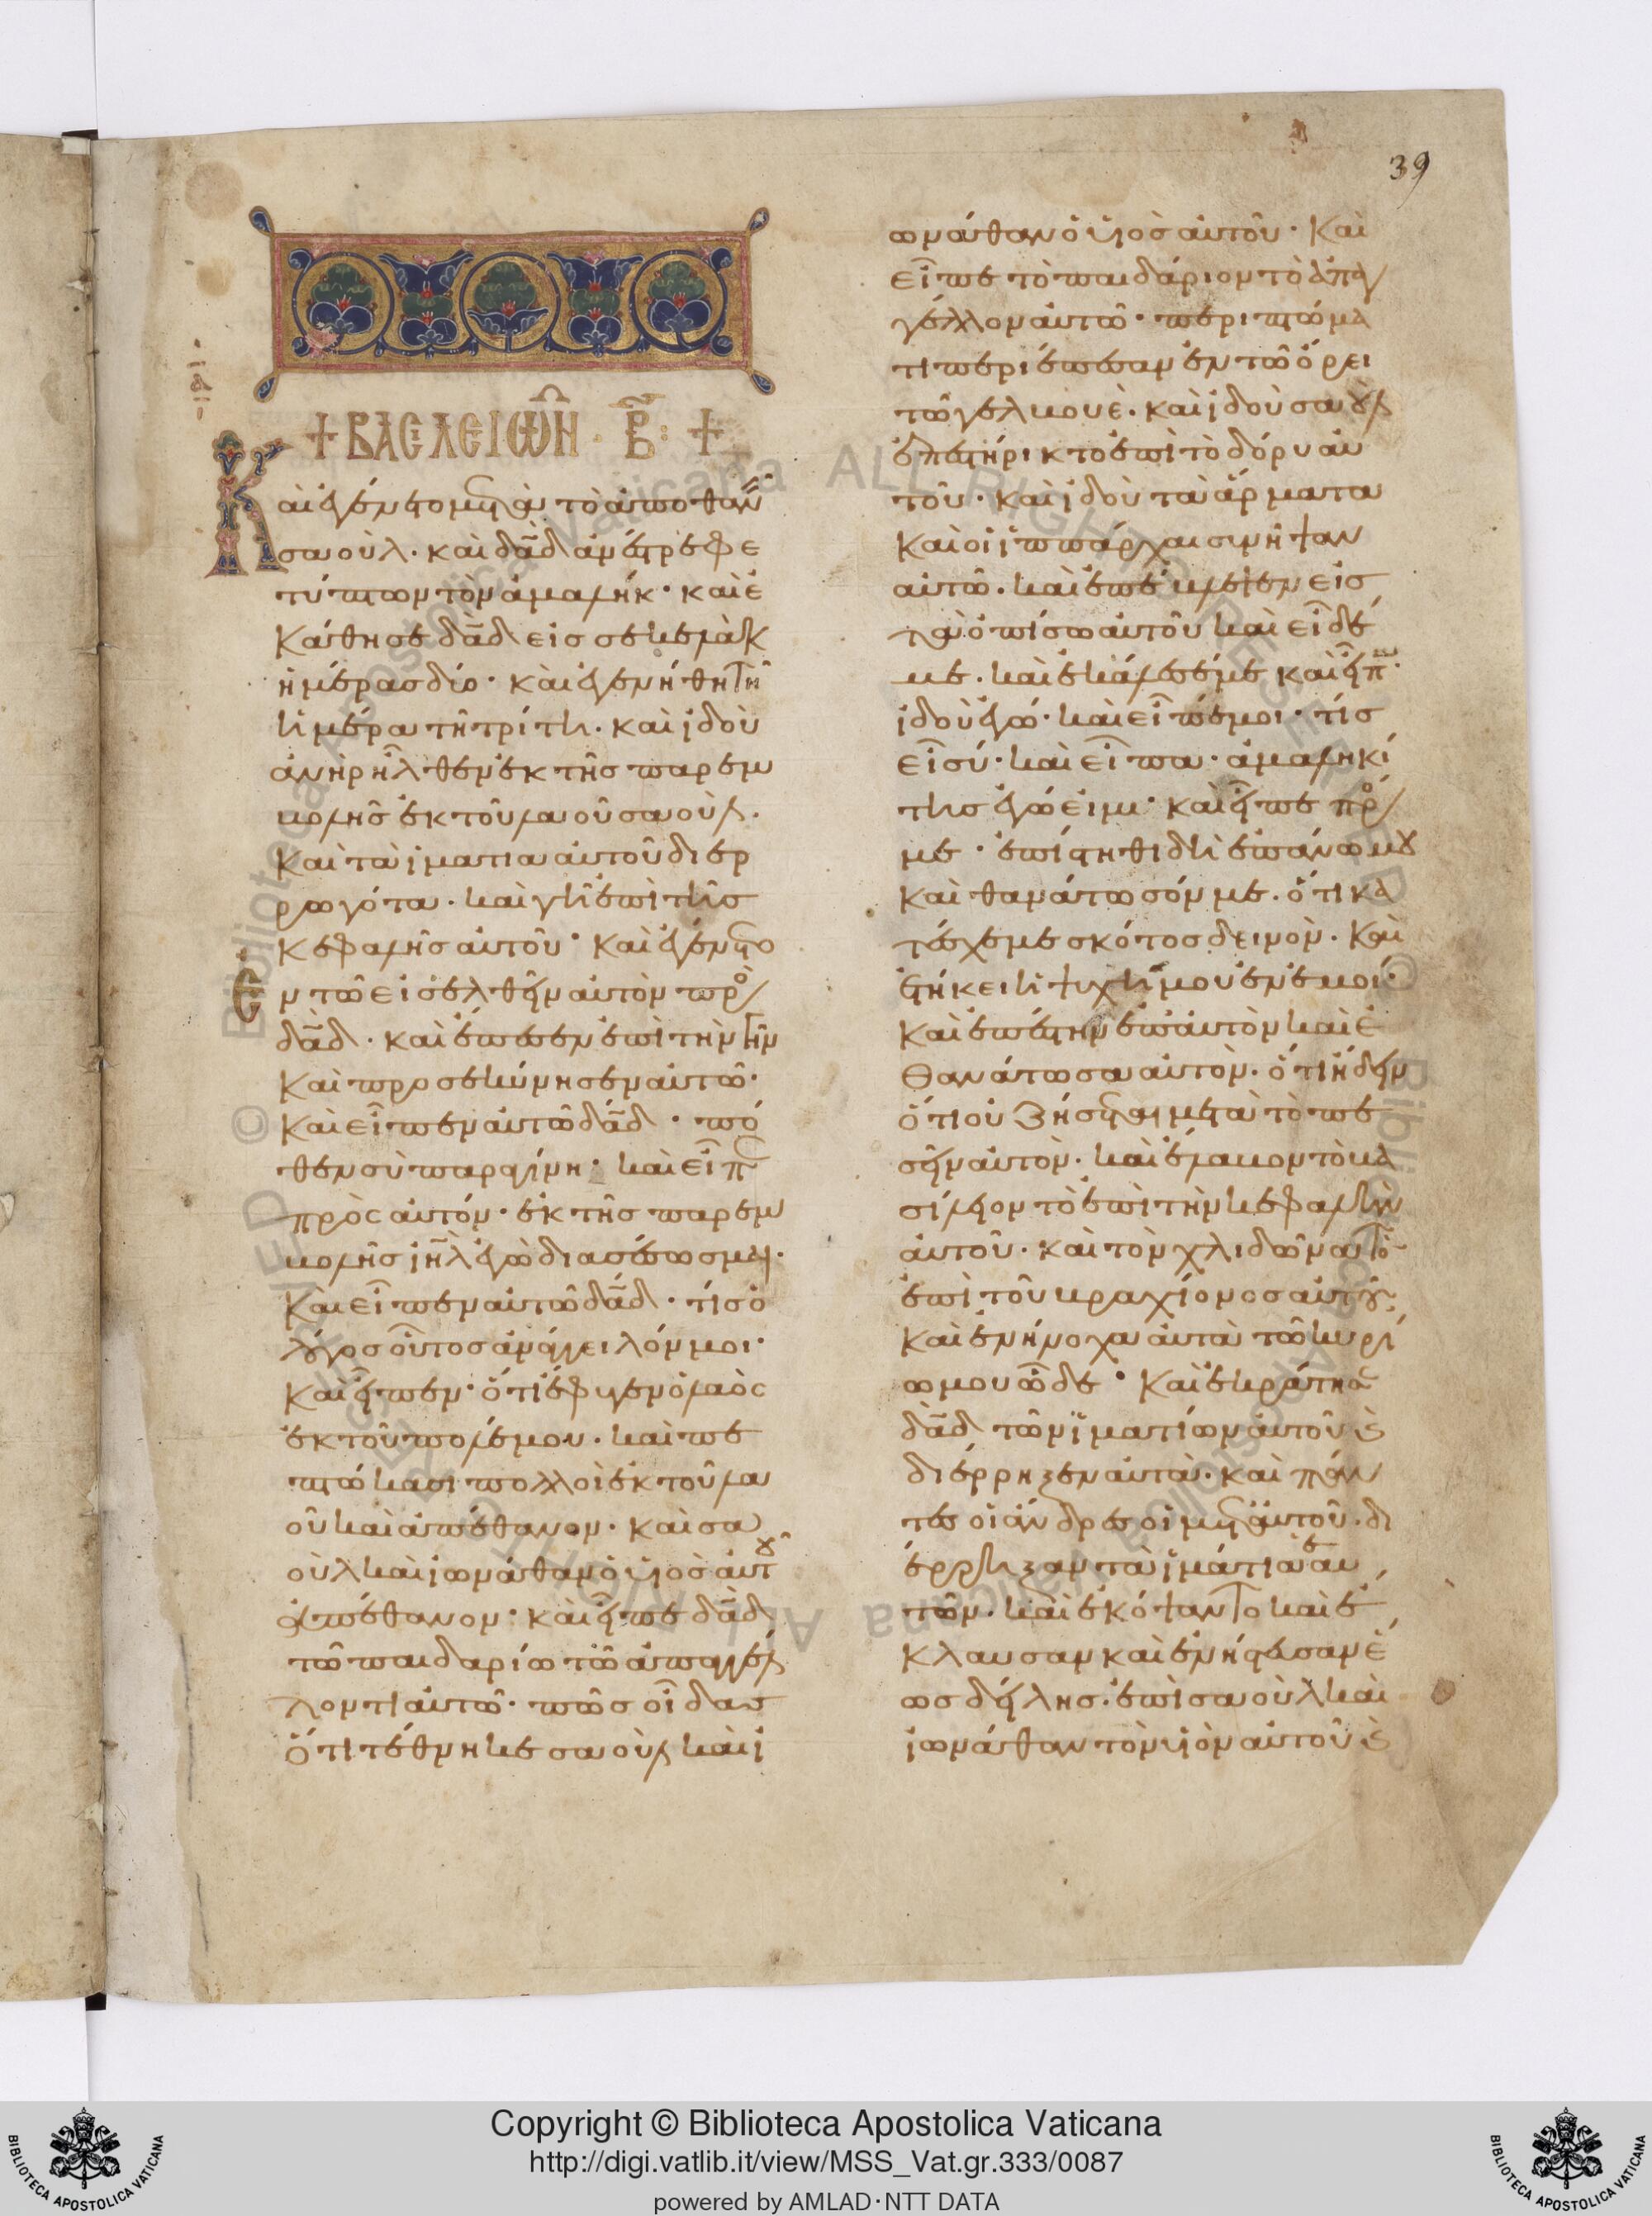 39
+ ΒΑΣΙΛΕΙΩΝ · Β̅ : +
Καὶ ἐγένετο μετὰ τὸ ἀποθαν
σαοὺλ· καὶ δᾱδ ἀνέστρεφε
τύπτων τὸν ἀμαλήκ· καὶ ἐ
κάθησε δᾱδ εἰς σεκελὰκ
ἡμέρας δύο· καὶ ἐγενήθη τῆ
ἡμέρα τῆ τρίτη. καὶ ἰδοὺ
ἀνὴρ ἦλθεν ἐκ τῆς παρεμ
βολῆς ἐκ τοῦ λαοῦ σαούλ.
καὶ τὰ ἱμάτια αὐτοῦ διερ
ρωγότα. καὶ γῆ ἐπὶ τῆς
κεφαλῆς αὐτοῦ· καὶ ἐγένετο
ἐν τῶ εἰσελθεῖν αὐτὸν πρὸ
δᾱδ. καὶ ἔπεσεν ἐπὶ τὴν γῆν
καὶ προσεκύνησεν αὐτῶ·
καὶ εἶπεν αὐτῶ δᾱδ· πό
θεν σὺ παραγίνη· καὶ εἶπε
πρὸς αὐτόν· ἐκ τῆς παρεμ
βολῆς ἰη̅λ ἐγὼ διασέσωσμαι·
καὶ εἶπεν αὐτῶ δᾱδ· τίς ὁ
λόγος οὗτος ἀνάγγειλόν μοι·
καὶ εἶπεν· ὅτι ἔφυγεν ὁ λαὸς
ἐκ τοῦ πολέμου. καὶ πε
πτώκασι πολλοὶ ἐκ τοῦ λα
οῦ καὶ ἀπέθανον. καὶ σα
οὺλ καὶ ἰωνάθαν ὁ υἱὸς αὐτοῦ
ἀπέθανον· καὶ εἶπε δᾱδ
τῶ παιδαρίω τῶ ἀπαγγέλ
λοντι αὐτῶ· πῶς οἶδας
ὅτι τέθνηκε σαοὺλ καὶ ἰ
ωνάθαν ὁ υἱὸς αὐτοῦ· καὶ
εἶπε τὸ παιδάριον τὸ ἀπαγ
γέλλον αὐτῶ· περιπτώμα
τι περιέπεσαν ἐν τῶ ὄρει
τῶ γελβουὲ. καὶ ἰδοὺ σαοὺλ
ἐπεστήρικτο ἐπὶ τὸ δόρυ αὐ
τοῦ· καὶ ἰδοὺ τὰ ἅρματα
καὶ οἱ ἱππάρχαι συνῆψαν
αὐτῶ. καὶ ἐπέβλεψεν εἰς
τὰ ὀπίσω αὐτοῦ καὶ εἶδέ
με. καὶ ἐκάλεσέ με καὶ εἶπον·
ἰδοὺ ἐγώ· καὶ εἶπέ μοι· τίς
εἶ σύ· καὶ εἶπα· ἀμαληκί
της ἐγώ εἰμι· καὶ εἶπε πρός
με· ἐπίστηθι δὴ ἐπάνω μου
καὶ θανάτωσόν με. ὅτι κα
τέσχε με σκότος δεινόν. καὶ
ἑστήκει ἡ ψυχή μου ἐν ἐμοί·
καὶ ἐπέστην ἐπ' αὐτὸν καὶ ἐ
θανάτωσα αὐτόν. ὅτι ἤδειν
ὅτι οὐ ζήσεται μετὰ τὸ πε
σεῖν αὐτόν. καὶ ἔλαβον τὸ βα
σίλειον τὸ ἐπὶ τὴν κεφαλὴν
αὐτοῦ. καὶ τὸν χλιδῶνα τὸ
ἐπὶ τοῦ βραχίονος αὐτοῦ
καὶ ἐνήνοχα αὐτὰ τῶ κυρί
ω μου ὧδε· καὶ ἐκράτησε
δᾱδ τῶν ἱματίων αὐτοῦ καὶ
διέρρηξεν αὐτὰ. καὶ πάν
τες οἱ ἄνδρες οἱ μετ' αὐτοῦ. δι
έρρηξαν τὰ ἱμάτια ἑαυ
τῶν. καὶ ἐκόψαντο καὶ ἔ
κλαυσαν καὶ ἐνήστευσαν ἕ
ως δείλης. ἐπὶ σαοὺλ καὶ
ἰωνάθαν τὸν υἱὸν αὐτοῦ καὶ
Copyright © Biblioteca Apostolica Vaticana
http://digi.vatlib.it/view/MSS_Vat.gr.333/0087
powered by AMLAD·NTT DATA
BIBLIOTECA APOSTOLICA VATICANA
BIBLIOTECA APOSTOLICA VATICANA